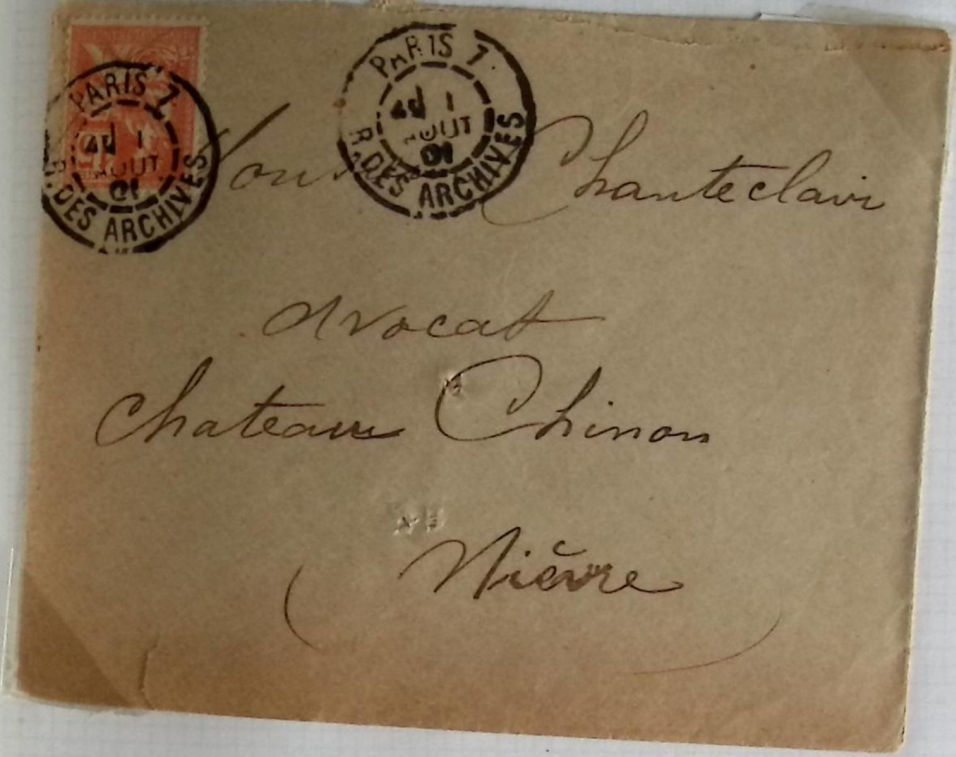 PARIS 7
1
AOUT
01
R. DES ARCHIVES
PARIS 7
1
AOUT
01
R. DES ARCHIVES
Chanteclair
Avocat
Chateau Chinon
(Nièvre)